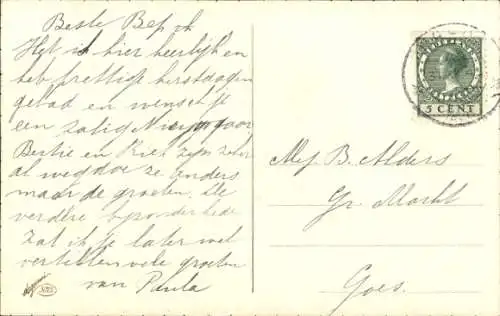 Beste Bep ik
Het is hier heerlijk en
heb prettige kerstdagen
gehad en wensch je
een zalig Nieuwjaar
Bertie en Riet zijn zeker
al weg doe ze anders
maar de groeten. De
verdere bijzonderheden
zal ik je later wel
vertellen vele groeten
van Paula
NEDERLAND
5 CENT
Mej. B. Alders
Gr. Markt
Goes.